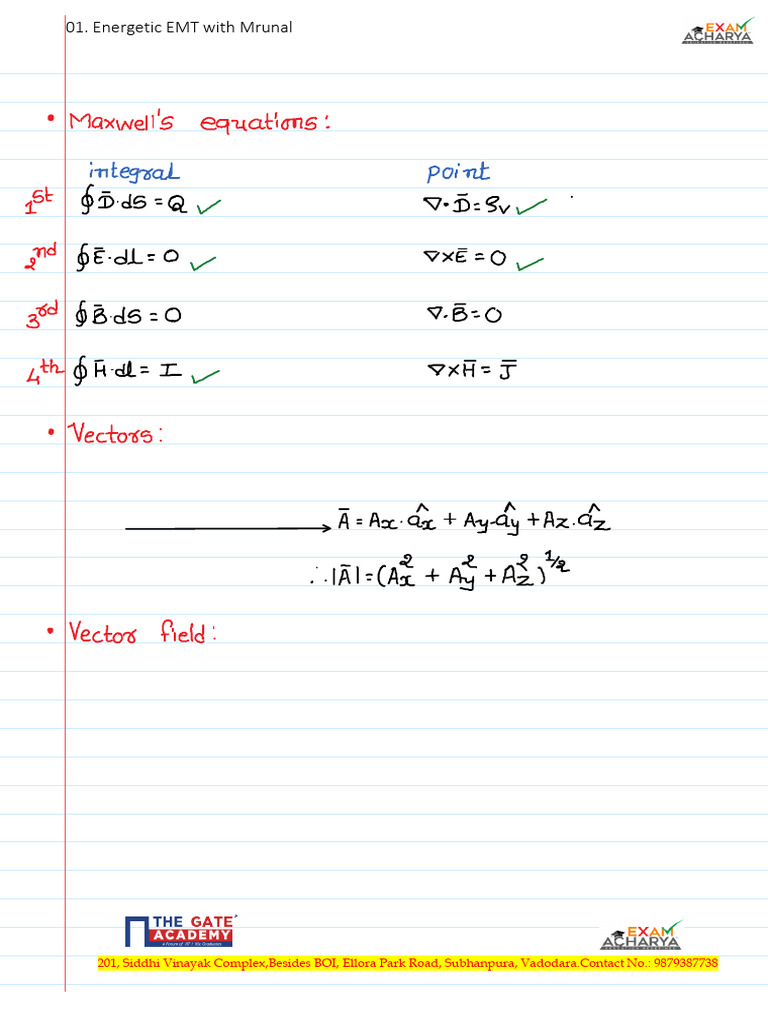 01. Energetic EMT with Mrunal
EXAM
ACHARYA
• Maxwell's equations:
integral point
1st ∮ D̄·dS = Q ✓ ∇·D̄ = ρv ✓
2nd ∮ Ē·dl = 0 ✓ ∇×Ē = 0 ✓
3rd ∮ B̄·dS = 0 ∇·B̄ = 0
4th ∮ H̄·dl = I ✓ ∇×H̄ = J̄
• Vectors:
Ā = Ax·âx + Ay·ây + Az·âz
∴ |Ā| = (Ax² + Ay² + Az²)^1/2
• Vector field:
THE GATE
ACADEMY
EXAM
ACHARYA
201, Siddhi Vinayak Complex,Besides BOI, Ellora Park Road, Subhanpura, Vadodara.Contact No.: 9879387738